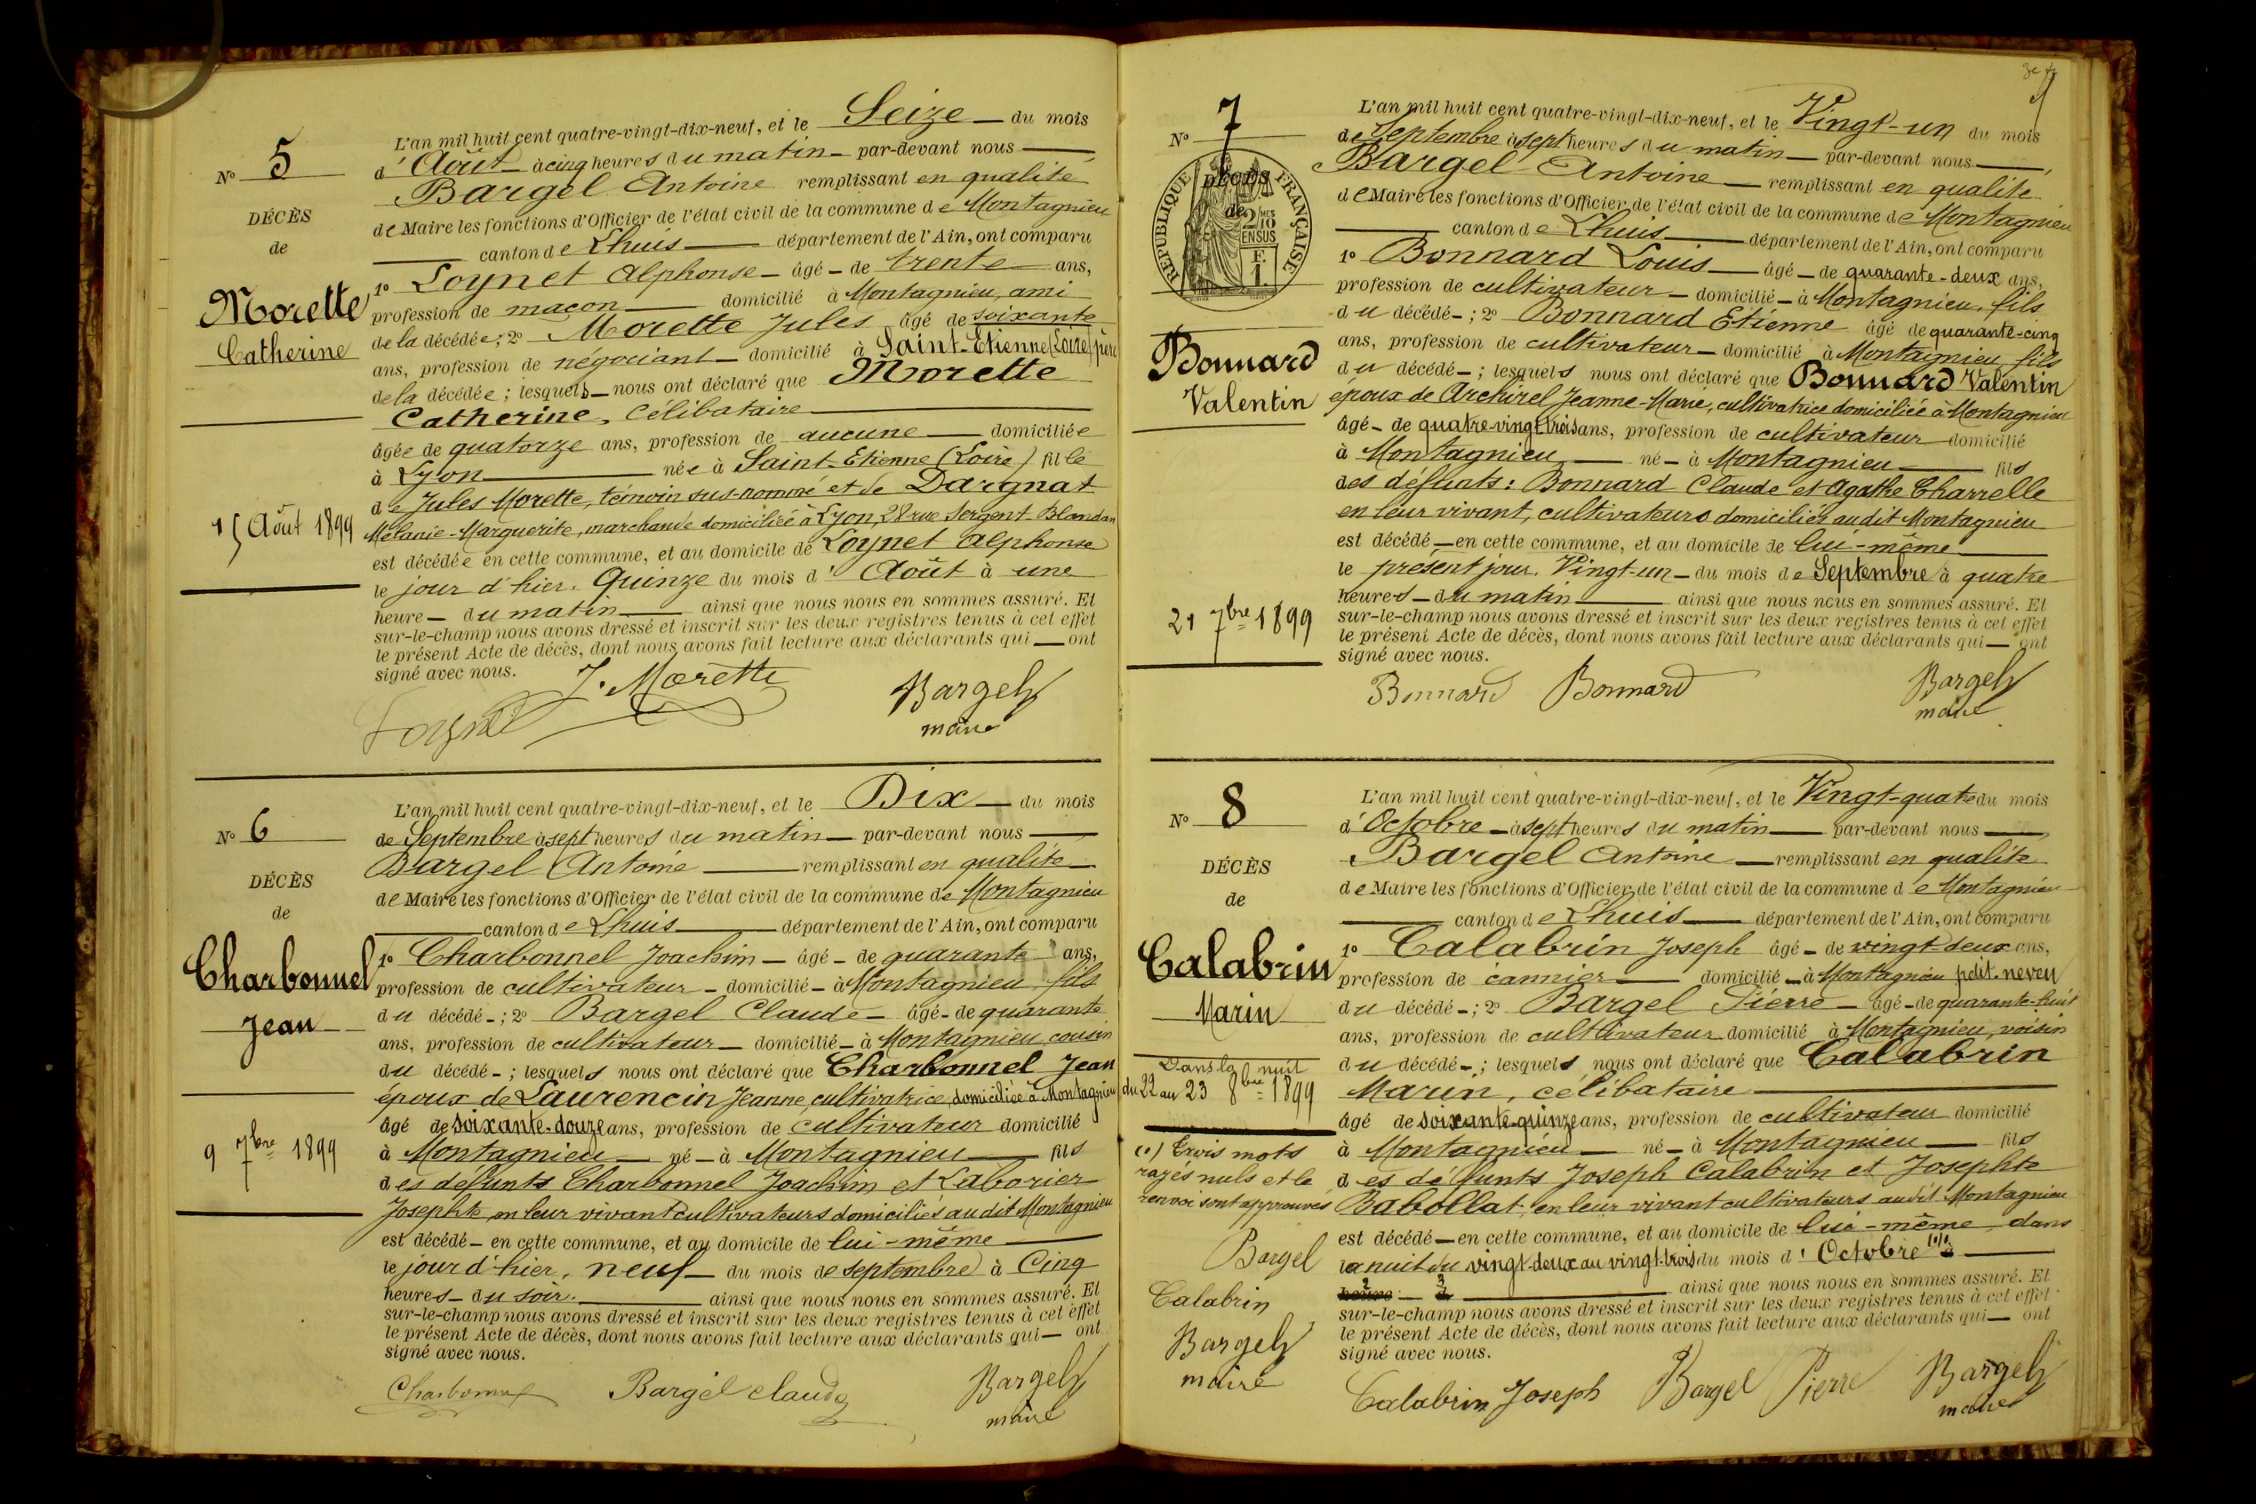 N° 5
DÉCÈS
de
Morette
Catherine
15 Août 1899
L'an mil huit cent quatre-vingt-dix-neuf, et le Seize du mois
d'Août à cinq heures du matin par-devant nous
Bargel Antoine remplissant en qualité
de Maire les fonctions d'Officier de l'état civil de la commune de Montagnieu
canton de Lhuis département de l'Ain, ont comparu
1° Loynet Alphonse âgé de trente ans,
profession de maçon domicilié à Montagnieu, ami
de la décédée; 2° Morette Jules âgé de soixante
ans, profession de négociant domicilié à Saint-Etienne (Loire) père
de la décédée; lesquels nous ont déclaré que Morette
Catherine, célibataire
âgée de quatorze ans, profession de aucune domiciliée
à Lyon née à Saint-Etienne (Loire) fille
de Jules Morette, témoin sus-nommé et de Dargnat
Mélanie-Marguerite, marchande domiciliée à Lyon, 28 rue Sergent-Blandan
est décédée en cette commune, et au domicile de Loynet Alphonse
le jour d'hier. Quinze du mois d'Août à une
heure du matin ainsi que nous nous en sommes assuré. Et
sur-le-champ nous avons dressé et inscrit sur les deux registres tenus à cet effet
le présent Acte de décès, dont nous avons fait lecture aux déclarants qui ont
signé avec nous.
J. Morette
Bargel
maire
Loynet
N° 6
DÉCÈS
de
Charbonnel
Jean
9 7bre 1899
L'an mil huit cent quatre-vingt-dix-neuf, et le Dix du mois
de Septembre à sept heures du matin par-devant nous
Bargel Antoine remplissant en qualité
de Maire les fonctions d'Officier de l'état civil de la commune de Montagnieu
canton de Lhuis département de l'Ain, ont comparu
1° Charbonnel Joachim âgé de quarante ans,
profession de cultivateur domicilié à Montagnieu, fils
du décédé; 2° Bargel Claude âgé de quarante
ans, profession de cultivateur domicilié à Montagnieu, cousin
du décédé; lesquels nous ont déclaré que Charbonnel Jean
époux de Laurencin Jeanne, cultivatrice, domiciliée à Montagnieu
âgé de soixante-douze ans, profession de cultivateur domicilié
à Montagnieu né à Montagnieu fils
des défunts Charbonnel Joachim et Laborier
Josephte, en leur vivant cultivateurs domiciliés audit Montagnieu
est décédé en cette commune, et au domicile de lui-même
le jour d'hier, neuf du mois de septembre à Cinq
heures du soir. ainsi que nous nous en sommes assuré. Et
sur-le-champ nous avons dressé et inscrit sur les deux registres tenus à cet effet
le présent Acte de décès, dont nous avons fait lecture aux déclarants qui ont
signé avec nous.
Charbonnel Bargel claude Bargel
maire
N° 7
RÉPUBLIQUE FRANÇAISE
DÉCÈS
de
2/10
EN SUS
F.
1.
Bonnard
Valentin
21 7bre 1899
L'an mil huit cent quatre-vingt-dix-neuf, et le Vingt-un du mois
de Septembre à sept heures du matin par-devant nous
Bargel Antoine remplissant en qualité
de Maire les fonctions d'Officier de l'état civil de la commune de Montagnieu
canton de Lhuis département de l'Ain, ont comparu
1° Bonnard Louis âgé de quarante-deux ans,
profession de cultivateur domicilié à Montagnieu, fils
du décédé; 2° Bonnard Etienne âgé de quarante-cinq
ans, profession de cultivateur domicilié à Montagnieu fils
du décédé; lesquels nous ont déclaré que Bonnard Valentin
époux de Archirel Jeanne-Marie, cultivatrice domiciliée à Montagnieu
âgé de quatre-vingt-trois ans, profession de cultivateur domicilié
à Montagnieu né à Montagnieu fils
des défunts: Bonnard Claude et Agathe Charrelle
en leur vivant, cultivateurs domiciliés audit Montagnieu
est décédé en cette commune, et au domicile de lui-même
le présent jour. Vingt-un du mois de Septembre à quatre
heures du matin ainsi que nous nous en sommes assuré. Et
sur-le-champ nous avons dressé et inscrit sur les deux registres tenus à cet effet
le présent Acte de décès, dont nous avons fait lecture aux déclarants qui ont
signé avec nous.
Bonnard Bonnard Bargel
maire
N° 8
DÉCÈS
de
Calabrin
Marin
Dans la nuit
du 22 au 23 8bre 1899
(1) Trois mots
rayés nuls et le
renvoi sont approuvés
Bargel
Calabrin
Bargel
maire
L'an mil huit cent quatre-vingt-dix-neuf, et le Vingt-quatre du mois
d'Octobre à sept heures du matin par-devant nous
Bargel Antoine remplissant en qualité
de Maire les fonctions d'Officier de l'état civil de la commune de Montagnieu
canton de Lhuis département de l'Ain, ont comparu
1° Calabrin Joseph âgé de vingt-deux ans,
profession de cannier domicilié à Montagnieu petit-neveu
du décédé; 2° Bargel Pierre âgé de quarante-huit
ans, profession de cultivateur domicilié à Montagnieu, voisin
du décédé; lesquels nous ont déclaré que Calabrin
Marin, célibataire
âgé de soixante-quinze ans, profession de cultivateur domicilié
à Montagnieu né à Montagnieu fils
des défunts Joseph Calabrin et Josephte
Babollat, en leur vivant cultivateurs audit Montagnieu
est décédé en cette commune, et au domicile de lui-même dans
la nuit du vingt-deux au vingt-trois du mois d'Octobre (1) à
heure d ainsi que nous nous en sommes assuré. Et
sur-le-champ nous avons dressé et inscrit sur les deux registres tenus à cet effet
le présent Acte de décès, dont nous avons fait lecture aux déclarants qui ont
signé avec nous.
Calabrin Joseph Bargel Pierre Bargel
maire